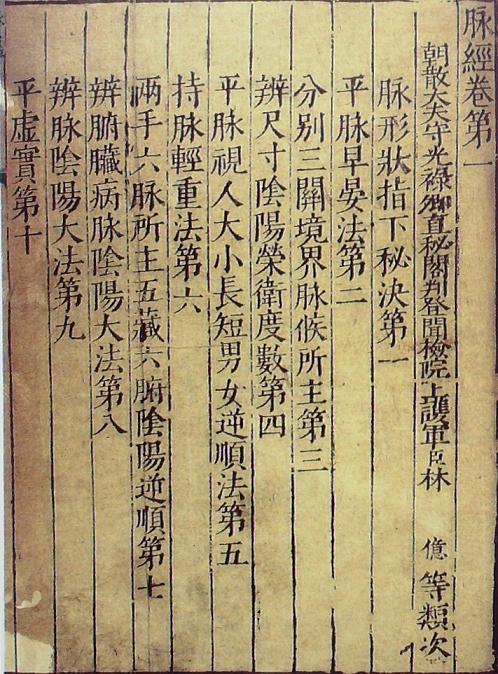 脉經卷第一
朝散大夫守光祿卿直秘閣判登聞檢院上護軍臣林 億等類次
脉形狀指下秘決第一
平脉早晏法第二
分别三關境界脉候所主第三
辨尺寸陰陽榮衛度數第四
平脉視人大小長短男女逆順法第五
持脉輕重法第六
兩手六脉所主五藏六腑陰陽逆順第七
辨腑臟病脉陰陽大法第八
辨脉陰陽大法第九
平虛實第十